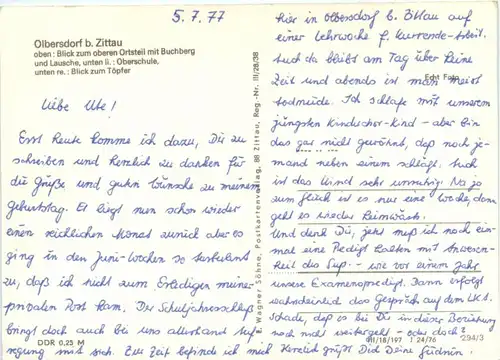 5.7.77
Olbersdorf b. Zittau
oben: Blick zum oberen Ortsteil mit Buchberg
und Lausche, unten li.: Oberschule,
unten re.: Blick zum Töpfer
Liebe Ute!
Erst heute komme ich dazu, Dir zu
schreiben und herzlich zu danken für
die Grüße und guten Wünsche zu meinem
Geburtstag. Er liegt nun schon wieder
einen reichlichen Monat zurück aber es
ging in den Juni-Wochen so turbulent
zu, daß ich nicht zum Erledigen meiner
privaten Post kam. Der Schuljahresschluß
bringt doch auch bei uns allerhand
mit sich. Zur Zeit befinde ich mich
DDR 0,23 M
E. Wagner Söhne, Postkartenverlag, 88 Zittau, Reg.-Nr. III/28/38
hier in Olbersdorf b. Zittau auf
einer Lehrwoche f. Kurrende-Arbeit.
Auch da bleibt am Tag über keine
Zeit und abends ist man meist
Echt Foto
todmüde. Ich schlafe mit unserem
jüngsten Kind – aber bin
das gar nicht gewöhnt, daß noch je-
mand neben einem schläft. Auch
ist das Kind sehr unruhig. Na ja
zum Glück ist es nur eine Woche, dann
geht es wieder heimwärts.
Und denk Dir, jetzt muß ich noch ein-
mal eine Predigt halten mit Anwesen-
heit des Sup. – wie vor einem Jahr
unsere Examenspredigt. Dann erfolgt
wahrscheinlich das Gespräch auf dem LKA.
Schade, daß es bei Dir in dieser Beziehung
noch nicht weitergeht – oder doch?
III/18/197 I 24/76 294/3
Herzlich grüßt Dich Deine